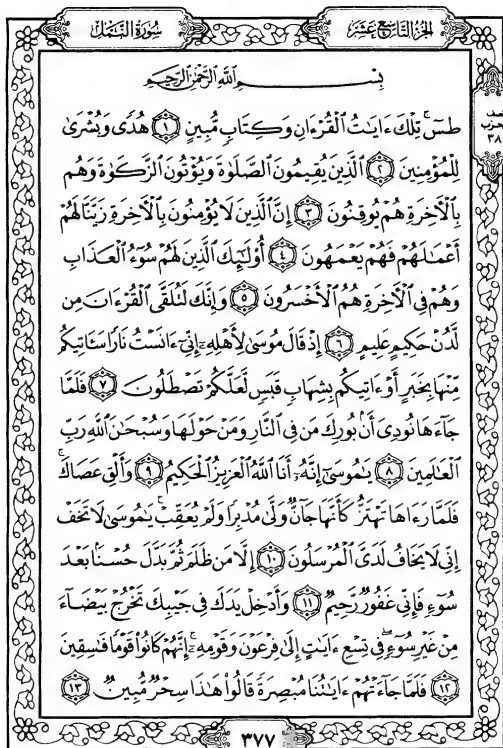 الجزء التاسع عشر
سورة النمل
نصف
الحزب
٣٨
بِسْمِ اللَّهِ الرَّحْمَٰنِ الرَّحِيمِ
طسٓ ۚ تِلْكَ ءَايَٰتُ ٱلْقُرْءَانِ وَكِتَابٍ مُّبِينٍ ١ هُدًى وَبُشْرَىٰ
لِلْمُؤْمِنِينَ ٢ ٱلَّذِينَ يُقِيمُونَ ٱلصَّلَوٰةَ وَيُؤْتُونَ ٱلزَّكَوٰةَ وَهُم
بِٱلْءَاخِرَةِ هُمْ يُوقِنُونَ ٣ إِنَّ ٱلَّذِينَ لَا يُؤْمِنُونَ بِٱلْءَاخِرَةِ زَيَّنَّا لَهُمْ
أَعْمَٰلَهُمْ فَهُمْ يَعْمَهُونَ ٤ أُو۟لَٰٓئِكَ ٱلَّذِينَ لَهُمْ سُوٓءُ ٱلْعَذَابِ
وَهُمْ فِى ٱلْءَاخِرَةِ هُمُ ٱلْأَخْسَرُونَ ٥ وَإِنَّكَ لَتُلَقَّى ٱلْقُرْءَانَ مِن
لَّدُنْ حَكِيمٍ عَلِيمٍ ٦ إِذْ قَالَ مُوسَىٰ لِأَهْلِهِۦٓ إِنِّىٓ ءَانَسْتُ نَارًا سَـَٔاتِيكُم
مِّنْهَا بِخَبَرٍ أَوْ ءَاتِيكُم بِشِهَابٍ قَبَسٍ لَّعَلَّكُمْ تَصْطَلُونَ ٧ فَلَمَّا
جَآءَهَا نُودِىَ أَنۢ بُورِكَ مَن فِى ٱلنَّارِ وَمَنْ حَوْلَهَا وَسُبْحَٰنَ ٱللَّهِ رَبِّ
ٱلْعَٰلَمِينَ ٨ يَٰمُوسَىٰٓ إِنَّهُۥٓ أَنَا ٱللَّهُ ٱلْعَزِيزُ ٱلْحَكِيمُ ٩ وَأَلْقِ عَصَاكَ ۚ
فَلَمَّا رَءَاهَا تَهْتَزُّ كَأَنَّهَا جَآنٌّ وَلَّىٰ مُدْبِرًا وَلَمْ يُعَقِّبْ ۚ يَٰمُوسَىٰ لَا تَخَفْ
إِنِّى لَا يَخَافُ لَدَىَّ ٱلْمُرْسَلُونَ ١٠ إِلَّا مَن ظَلَمَ ثُمَّ بَدَّلَ حُسْنًۢا بَعْدَ
سُوٓءٍ فَإِنِّى غَفُورٌ رَّحِيمٌ ١١ وَأَدْخِلْ يَدَكَ فِى جَيْبِكَ تَخْرُجْ بَيْضَآءَ
مِنْ غَيْرِ سُوٓءٍ ۖ فِى تِسْعِ ءَايَٰتٍ إِلَىٰ فِرْعَوْنَ وَقَوْمِهِۦٓ ۚ إِنَّهُمْ كَانُوا۟ قَوْمًا فَٰسِقِينَ
١٢ فَلَمَّا جَآءَتْهُمْ ءَايَٰتُنَا مُبْصِرَةً قَالُوا۟ هَٰذَا سِحْرٌ مُّبِينٌ ١٣
٣٧٧